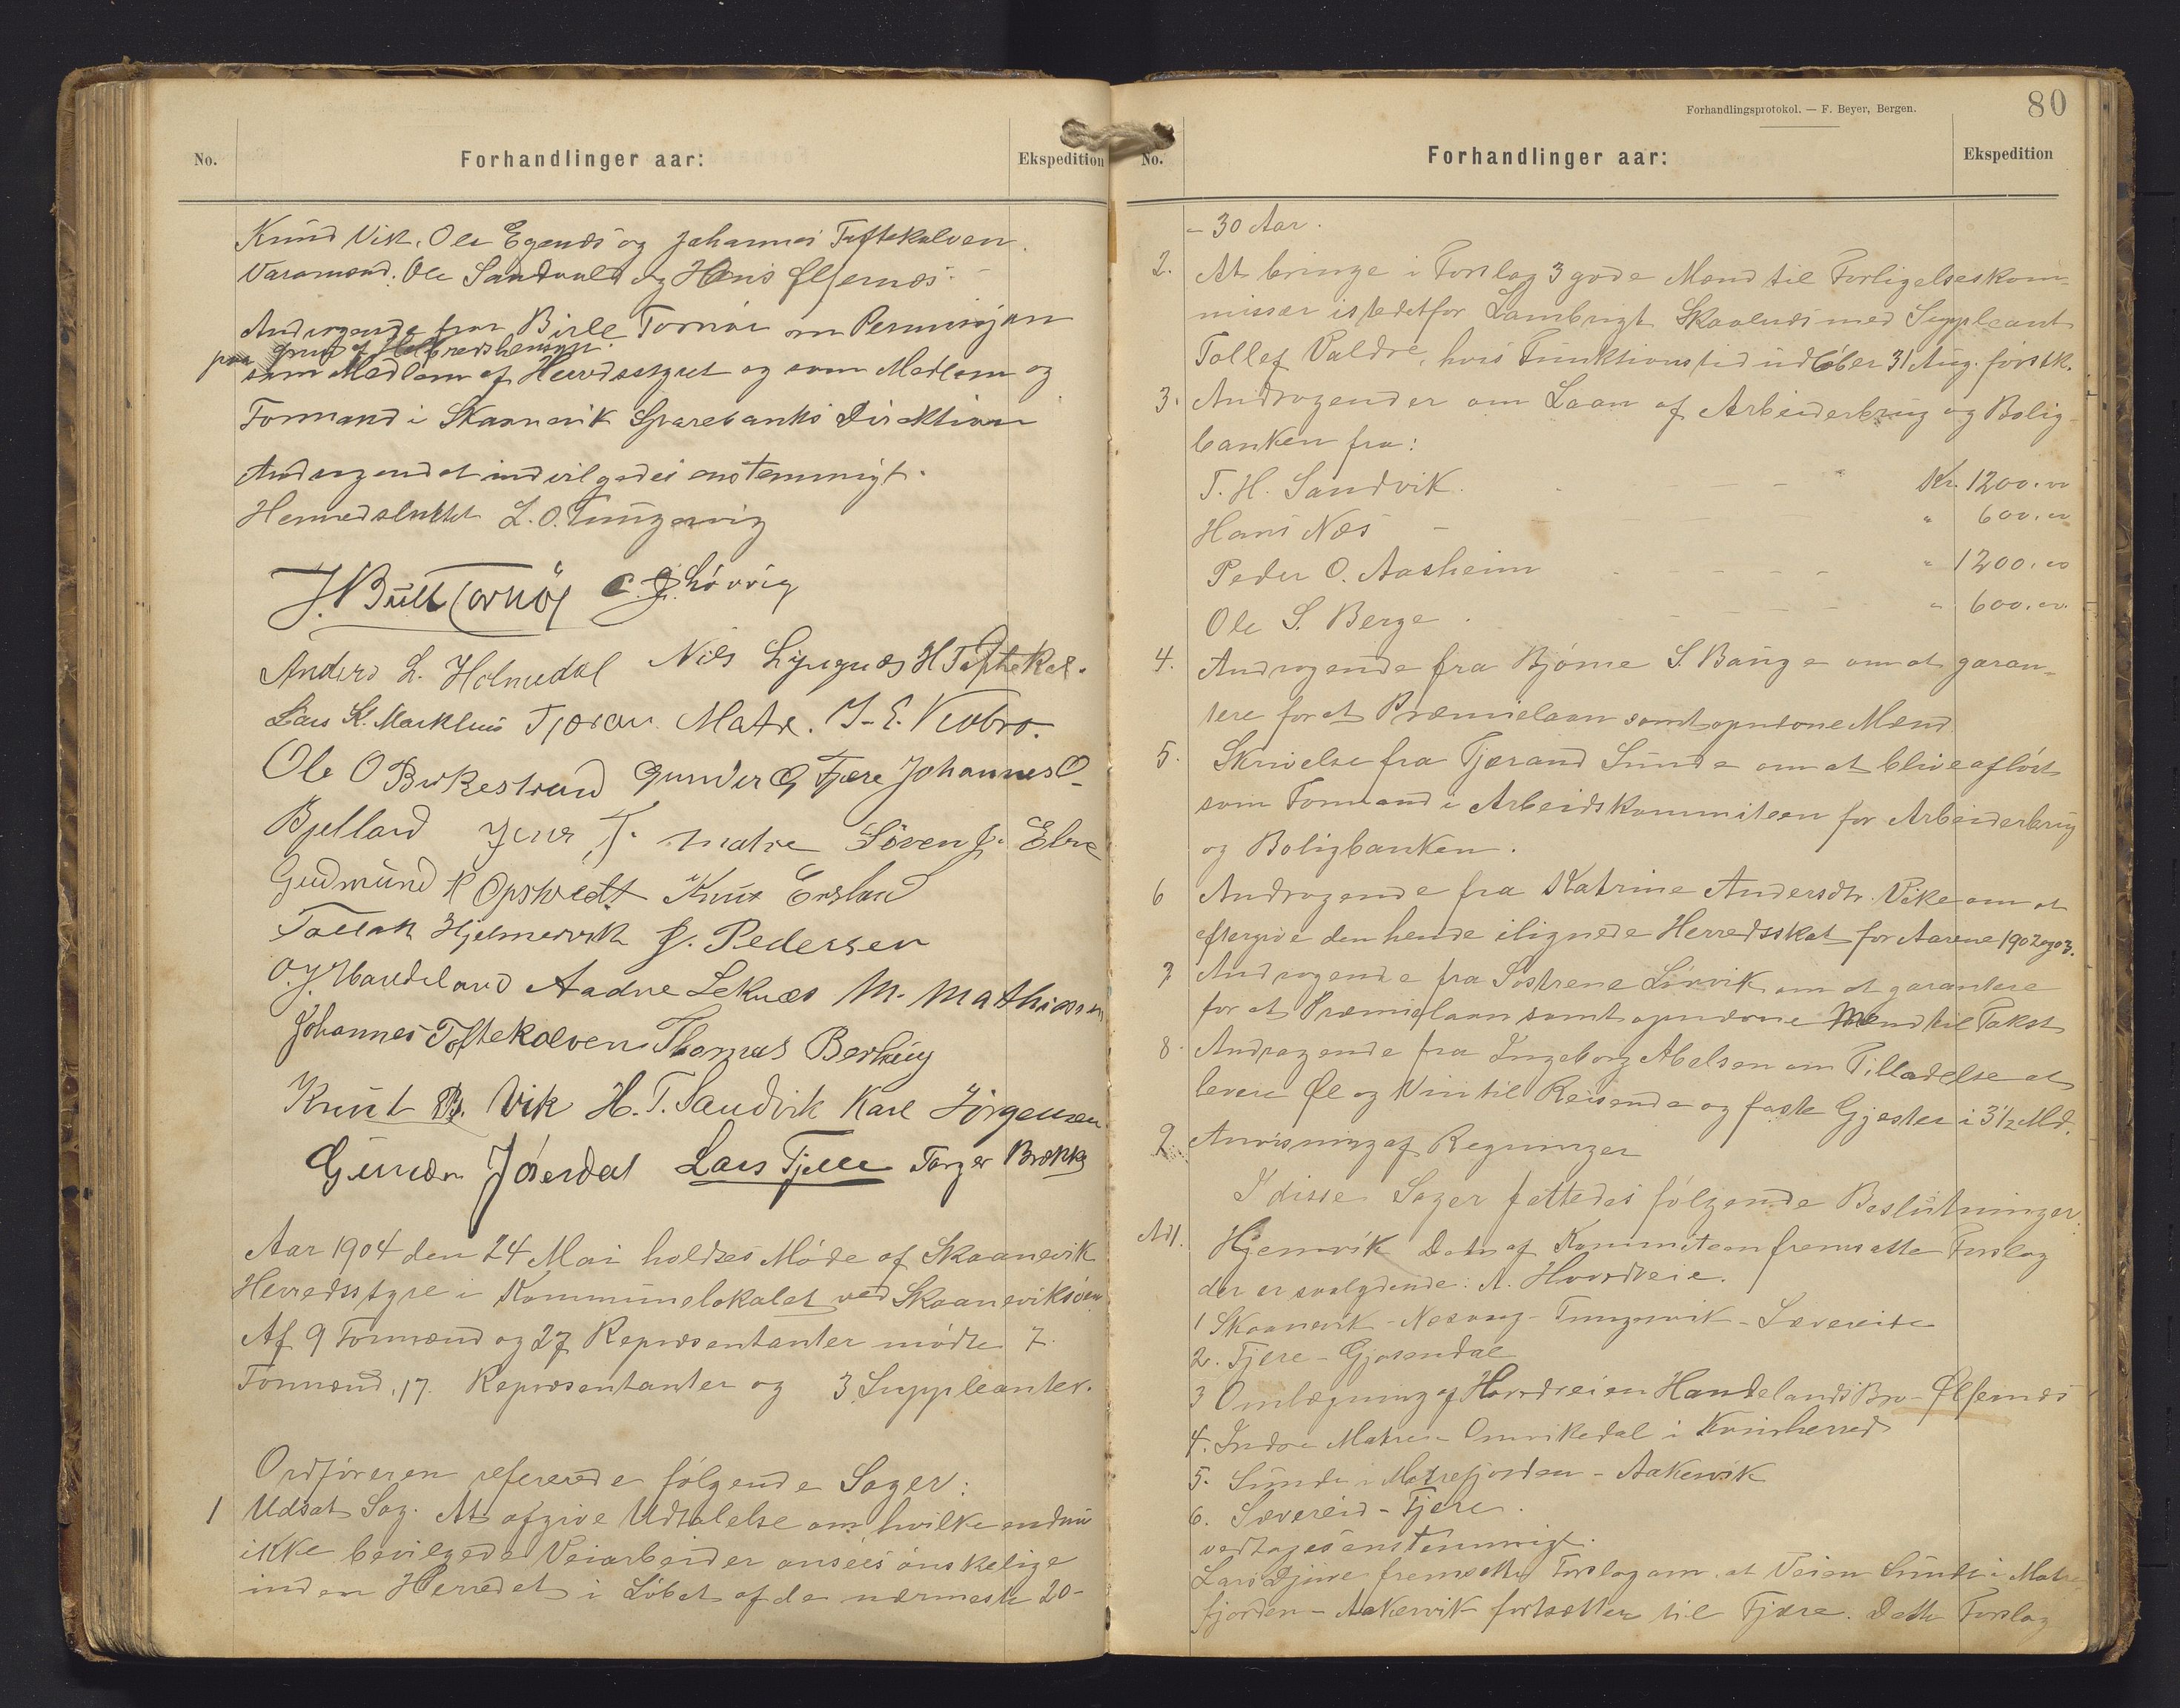 No.
Forhandlinger aar:
Ekspedition
Knud Vik. Ole Egenæs og Johannes Toftekalven.
Varamænd. Ole Sandvald og Hans Ølfernæs.
Andragende fra Bille Tornøe om Permisjon
paa Grund af Helbredshensyn
som Medlem af Herredsstyret og som Medlem og
Formand i Skaanevik Sparebanks Direktion
Andragendet indvilgedes enstemmigt.
Hermed sluttet L. O. Tungesvig
J. Büll Tornøe C. J. Løvvig
Anders L. Holmedal Nils Lyngnæs H Toftekal.
Lars K. Markhus Tjøran Matre. J. E. Vibro.
Ole O Birkestrand Gunder G Fjære Johannes O
Bjelland Jens T. Matre Søren J. Ebne
Gudmund H Opstvedt Knut Ersland
Tollak Hjelmervik J. Pedersen
O. J. Handeland Aadne Leknæs M. Mathiassen
Johannes Toftekalven Thomas Berhaug
Knut Vik H. T. Sandvik Karl Jørgensen
Gunder Jøsendal Lars Fjære Torger Brekke
Aar 1904 den 24 Mai holdtes Møde af Skaanevik
Herredsstyre i Kommunelokalet ved Skaaneviksøen
Af 9 Formænd og 27 Repræsentanter mødte 7
Formænd, 17 Repræsentanter og 3 Suppleanter.
Ordføreren refererede følgende Sager:
1 Udsat Sag. At afgive Udtalelse om hvilke endnu
ikke bevilgede Veiarbeider ansees ønskelige
inden Herredet i Løbet af de nærmeste 20-
Forhandlingsprotokol. — F. Beyer, Bergen.
80
No.
Forhandlinger aar:
Ekspedition
- 30 Aar.
2. At bringe i Forslag 3 gode Mænd til Forligelseskom-
missær istedetfor Lambrigt Skaalnæs med Suppleant
Tollef Valdre, hvis Funktionstid udløber 31 Aug. førstk.
3. Andragender om Laan af Arbeiderbrug og Bolig
banken fra:
T. H. Sandvik. Kr. 1200.00
Hans Næs - " 600.00
Peder O. Aasheim " 1200.00
Ole S. Berge. " 600.00.
4. Andragende fra Bjørne S. Bauge om at garan-
tere for et Præmielaan samt opnævne Mænd
5. Skrivelse fra Tjerand Sunde om at blive afløst
som Formand i Arbeidskommiteen for Arbeiderbrug
og Boligbanken.
6 Andragende fra Katrine Andersdtr. Vike om at
eftergive den hende ilignede Herredsskat for Aarene 1902 og 03.
7 Andragende fra Søstrene Lørvik om at garantere
for et Præmielaan samt opnævne Mænd til Takst
8. Andragende fra Ingeborg Abelsen om Tilladelse at
levere Øl og Vin til Reisende og faste Gjester i 3 1/2 Md.
9. Anvisning af Regninger
I disse Sager fattedes følgende Beslutninger.
Ad 1. Hjemvik Det af Kommiteen fremsatte Forslag
der er saalydende: A. Hovedveie.
1 Skaanevik - Næsvag - Tungesvik - Sævereide
2. Fjære - Gjøsendal
3 Omlægning af Hovedveien Handelands Bro - Ølfernæs
4. Indre Matre - Omvikedal i Kvinherred
5. Sunde i Matrefjorden - Aakervik
6. Sævereid - Fjære.
vedtages enstemmigt.
Lars Fjære fremsatte Forslag om at Veien Sunde i Matre
fjorden - Aakervik fortsætter til Fjære. Dette Forslag